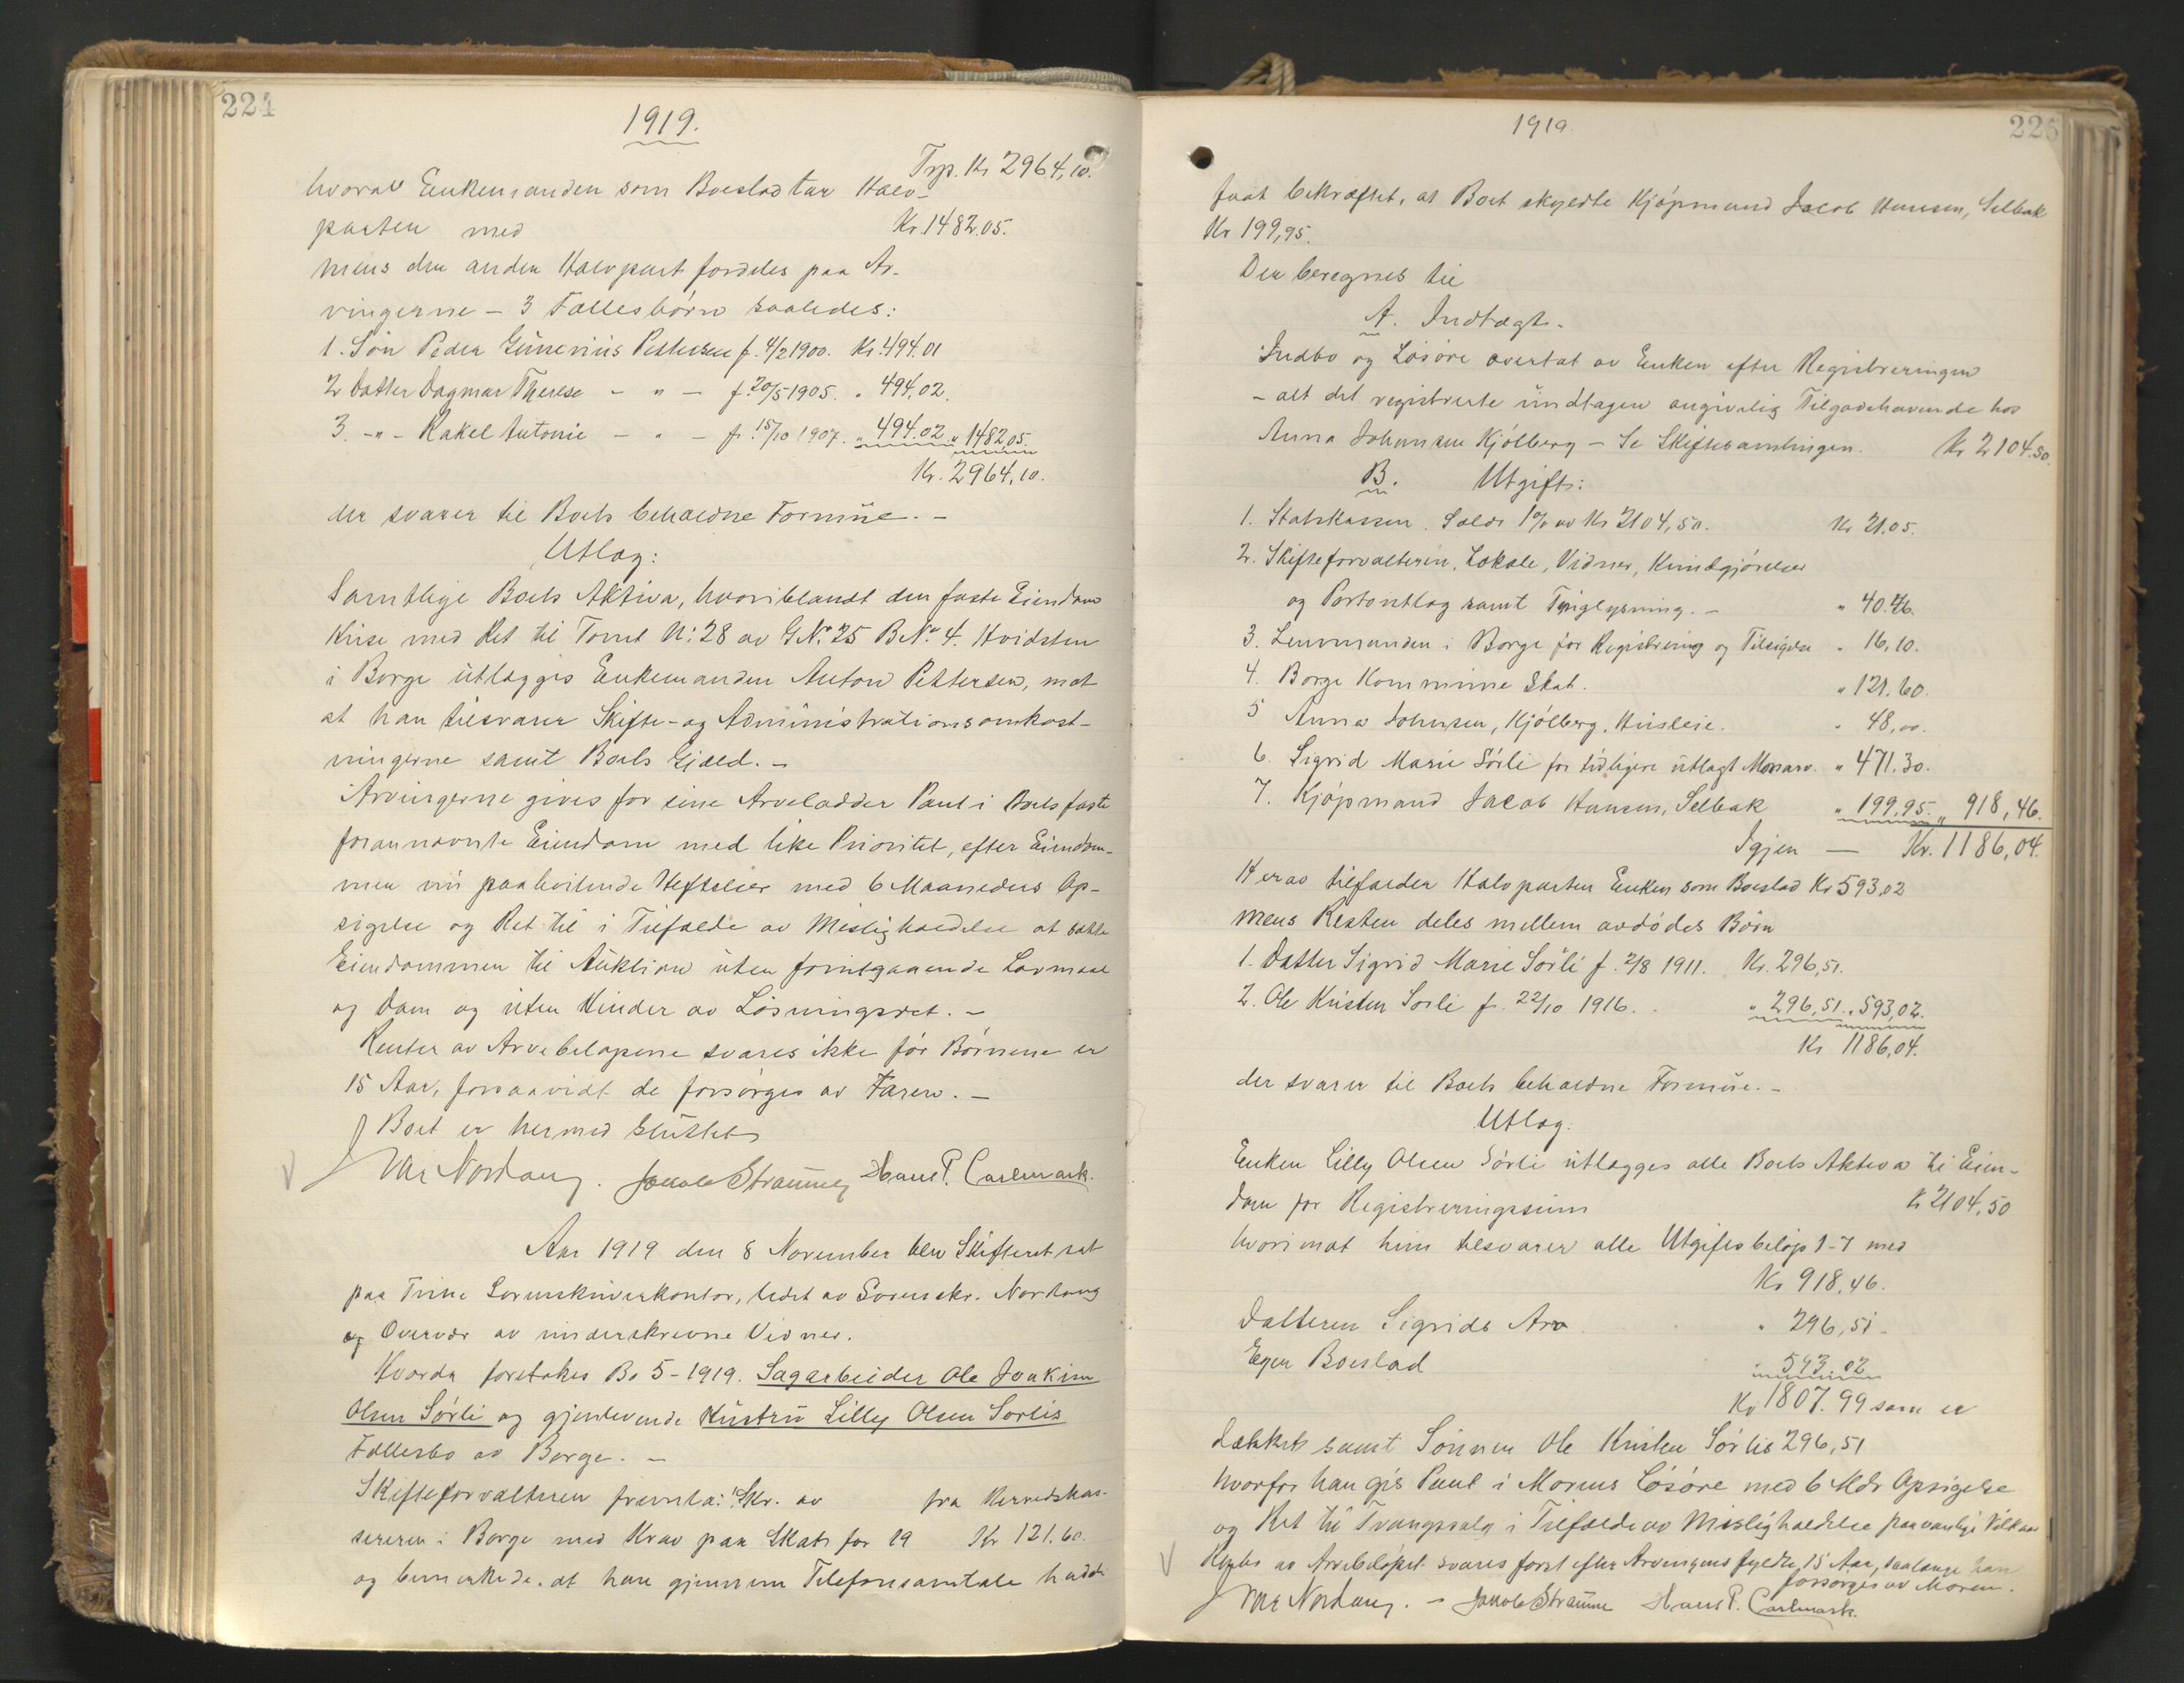 224
1919.
Trp. Kr 2964,10.
hvorav Enkemanden som Boeslod tar Halv-
parten med Kr. 1482.05.
mens den anden Halvpart fordeles paa Ar-
vingerne – 3 Fællesbörn saaledes:
1. Sön Peder Gunerius Pettersen f. 4/2 1900. Kr. 494.01
2 Datter Dagmar Therese – " – f. 20/5 1905. " 494,02.
3. –"– Rakel Antonie – " – f. 15/10 1907. " 494.02 " 1482 05.
Kr. 2964,10.
der svarer til Boets beholdne Formue. –
Utlæg:
Samtlige Boets Aktiva, hvoriblandt den faste Eiendom
Huse med Ret til Tomt No 28 av G.No 25 B.No 4. Hvidsten
i Borge utlægges Enkemanden Anton Pettersen, mot
at han tilsvarer Skifte- og Administrationsomkost-
ningerne samt Boets Gjæld. –
Arvingerne gives for sine Arvelodder Pant i Boets faste
forannævnte Eiendom med like Prioritet, efter Eiendom-
men nu paahvilende Heftelser med 6 Maaneders Op-
sigelse og Ret til i Tilfælde av Misligholdelse at sætte
Eiendommen til Auktion uten forutgaaende Lovmaal
og Dom og uten Hinder av Lösningsret. –
Renter av Arvebelöpene svares ikke för Börnene er
15 Aar, forsaavidt de forsörges av Faren. –
Boet er hermed sluttet
Nordang. Jakob Strømnes Hans P. Carlmark.
Aar 1919 den 8 November blev Skifteret sat
paa Tune Sorenskriverkontor, ledet av Sorenskr. Nordang
og Overvær av underskrevne Vidner.
Hvorda foretokes Bo 5-1919. Sagarbeider Ole Joakim
Olsen Sörli og gjenlevende Hustru Lilly Olsen Sörlis
Fællesbo av Borge. –
Skifteforvalteren fremla: 1. Skr. av fra Herredskas-
sereren i Borge med Krav paa Skat for 19 Kr 121.60.
og bemerkede. at han gjennem Telefonsamtale hadde
1919.
225
faat bekræftet, at Boet skyldte Kjöpmand Jacob Hansen, Selbak
Kr 199,95.
Der beregnes til
A. Indtægt.
Indbo og Lösöre overtat av Enken efter Registreringen
– alt det registrerte undtagen angivelig Tilgodehavende hos
Anna Johansen Kjölberg – Se Skiftesamlingen. Kr 2104.50.
B. Utgift:
1. Statskassen. Sælds 1% av Kr 2104,50. Kr 21.05.
2. Skifteforvalteren, Lokale, Vidner, Kundgjörelser
og Portoutlæg samt Tinglysning. – " 40.46.
3. Lensmanden i Borge for Registrering og Tilsigelse " 16,10.
4. Borge Kommune Skat. " 121.60.
5 Anna Johnsen, Kjölberg. Husleie. " 48,00.
6. Sigrid Marie Sörli for tidligere utlagt Morsarv. " 471.30.
7. Kjöpmand Jacob Hansen, Selbak " 199,95. " 918,46.
Igjen — Kr. 1186,04.
Herav tilfalder Halvparten Enken som Boeslod Kr 593,02
mens Resten deles mellem avdödes Börn
1. Datter Sigrid Marie Sörli f. 2/8 1911. Kr. 296,51.
2. Ole Kristen Sörli f. 22/10 1916. " 296,51. " 593,02.
Kr 1186,04.
der svarer til Boets beholdne Formue. –
Utlæg.
Enken Lilly Olsen Sörli utlægges alle Boets Aktiva til Eien-
dom for Registreringssum Kr 2104,50
hvorimot hun tilsvarer alle Utgiftsbelöp 1-7 med
Kr 918,46.
Datteren Sigrids Arv " 296,51 –
Egen Boeslod " 593.02
Kr 1807.99 som er
dækket samt Sönnen Ole Kristen Sörlis 296,51
hvorfor han gis Pant i Morens Lösöre med 6 Mdr Opsigelse
og Ret til Tvangssalg i Tilfælde av Misligholdelse paa vanlige Vilkaar
av Arvebelöpet svares först efter Arvingens fyldte 15 Aar, saalænge han
forsörges av Moren.
Nordang. – Jakob Strømnes Hans P. Carlmark.